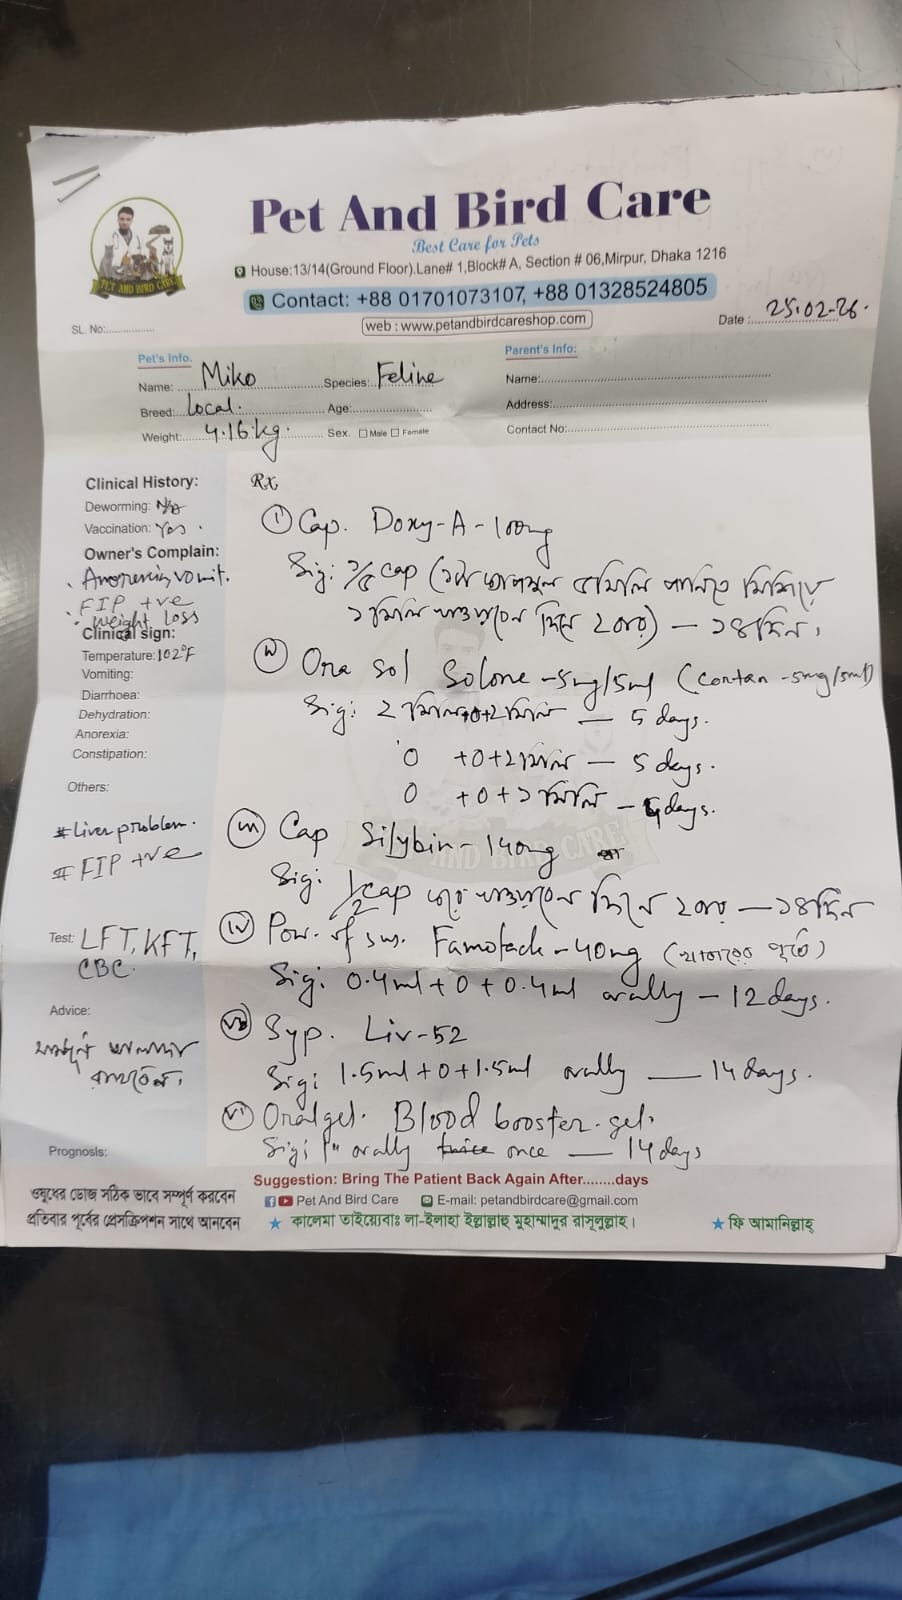 Pet And Bird Care
Best Care for Pets
House:13/14(Ground Floor).Lane# 1,Block# A, Section # 06,Mirpur, Dhaka 1216
Contact: +88 01701073107, +88 01328524805
web : www.petandbirdcareshop.com
PET AND BIRD CARE
SL. No:
Date : 25.02-26.
Pet's Info.
Name: Miko Species: Feline
Breed: Local. Age:
Weight: 4.16 kg. Sex. Male Female
Parent's Info:
Name:
Address:
Contact No:
Clinical History:
Deworming: No
Vaccination: Yes.
Owner's Complain:
vomit.
FIP +ve
weight loss
Clinical sign:
Temperature: 102°F
Vomiting:
Diarrhoea:
Dehydration:
Anorexia:
Constipation:
Others:
# Liver problem.
# FIP +ve
Test: LFT, KFT,
CBC.
Advice:
সম্পূর্ণ আলাদা
রাখবেন।
Prognosis:
Rx
i Cap. Doxy-A-100mg
Sig: 1/5 cap (১টা ক্যাপসুল ৫মিলি পানিতে মিশিয়ে
১ মিলি খাওয়াবেন দিনে ২বার) — ১৪দিন।
ii Ora sol Solone -5mg/5ml (contan -5mg/5ml)
Sig: 2 মিলি+0+2মিলি — 5 days.
0 +0+2মিলি — 5 days.
0 +0+১ মিলি — 4days.
iii Cap Silybin-140mg
Sig: 1/2cap করে খাওয়াবেন দিনে ২বার — ১৪দিন
iv Pow. of sus. Famotack-40mg (খাবারের পূর্বে)
Sig: 0.4ml+0+0.4ml orally — 12days.
v Syp. Liv-52
Sig: 1.5ml+0+1.5ml orally — 14days.
vi Oralgel. Blood booster gel.
Sig: 1" orally twice once — 14days
Suggestion: Bring The Patient Back Again After........days
Pet And Bird Care E-mail: petandbirdcare@gmail.com
ওষুধের ডোজ সঠিক ভাবে সম্পূর্ণ করবেন
প্রতিবার পূর্বের প্রেসক্রিপশন সাথে আনবেন
কালেমা তাইয়্যেবাঃ লা-ইলাহা ইল্লাল্লাহু মুহাম্মাদুর রাসূলুল্লাহ।
ফি আমানিল্লাহ